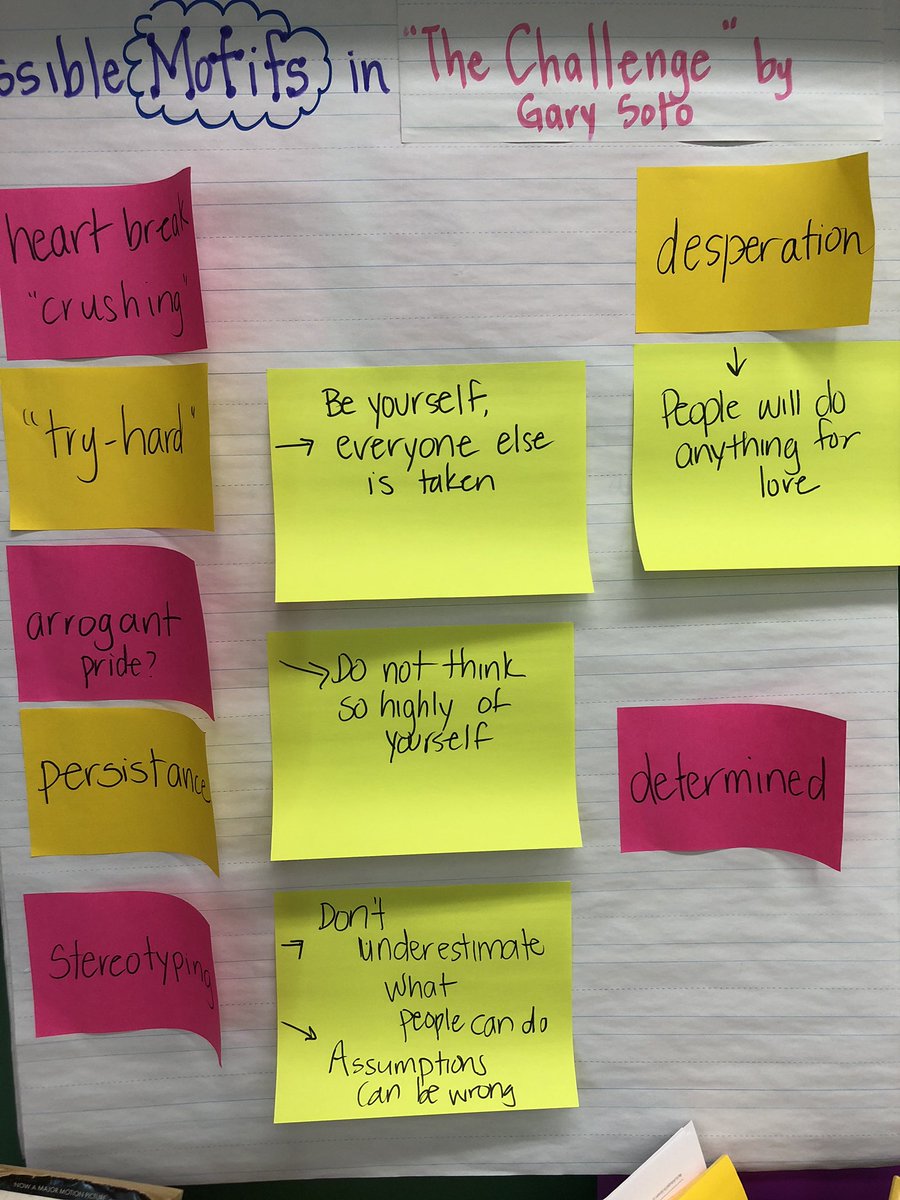 ossible Motifs in "The Challenge" by
Gary Soto
heart break
"crushing"
"try-hard"
arrogant
pride?
persistance
Stereotyping
Be yourself,
→ everyone else
is taken
→ Do not think
so highly of
yourself
Don't
→ underestimate
what
people can do
→ Assumptions
can be wrong
desperation
↓
People will do
anything for
love
determined
NOW A MAJOR MOTION PICTURE